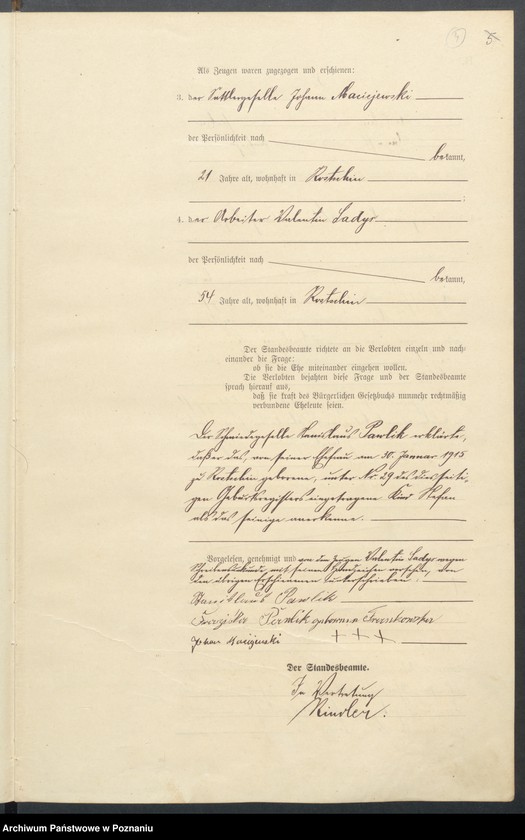 (5) 5
Als Zeugen waren zugezogen und erschienen:
3. der Sattlergeselle Johann Maciejewski
der Persönlichkeit nach
bekannt,
21 Jahre alt, wohnhaft in Kostschin
;
4. der Arbeiter Valentin Ladys
der Persönlichkeit nach
bekannt,
54 Jahre alt, wohnhaft in Kostschin
Der Standesbeamte richtete an die Verlobten einzeln und nach-
einander die Frage:
ob sie die Ehe miteinander eingehen wollen.
Die Verlobten bejahten diese Frage und der Standesbeamte
sprach hierauf aus,
daß sie kraft des Bürgerlichen Gesetzbuchs nunmehr rechtmäßig
verbundene Eheleute seien.
Der Schmiedegeselle Stanislaus Pawlik erklärte,
daß er das, von seiner Ehefrau am 30. Januar 1915
zu Kostschin geborene, unter Nr. 29 des diesseiti-
gen Geburtsregisters eingetragene Kind Stefan
als das seinige anerkenne.
Vorgelesen, genehmigt und von dem Zeugen Valentin Ladys wegen
mit seinem Handzeichen versehen, von
den übrigen Erschienenen unterschrieben:
Stanislaus Pawlik
Pawlik geborene Frankowska
Johan
+ + +
Der Standesbeamte.
In Vertretung
Kindler.
Archiwum Państwowe w Poznaniu